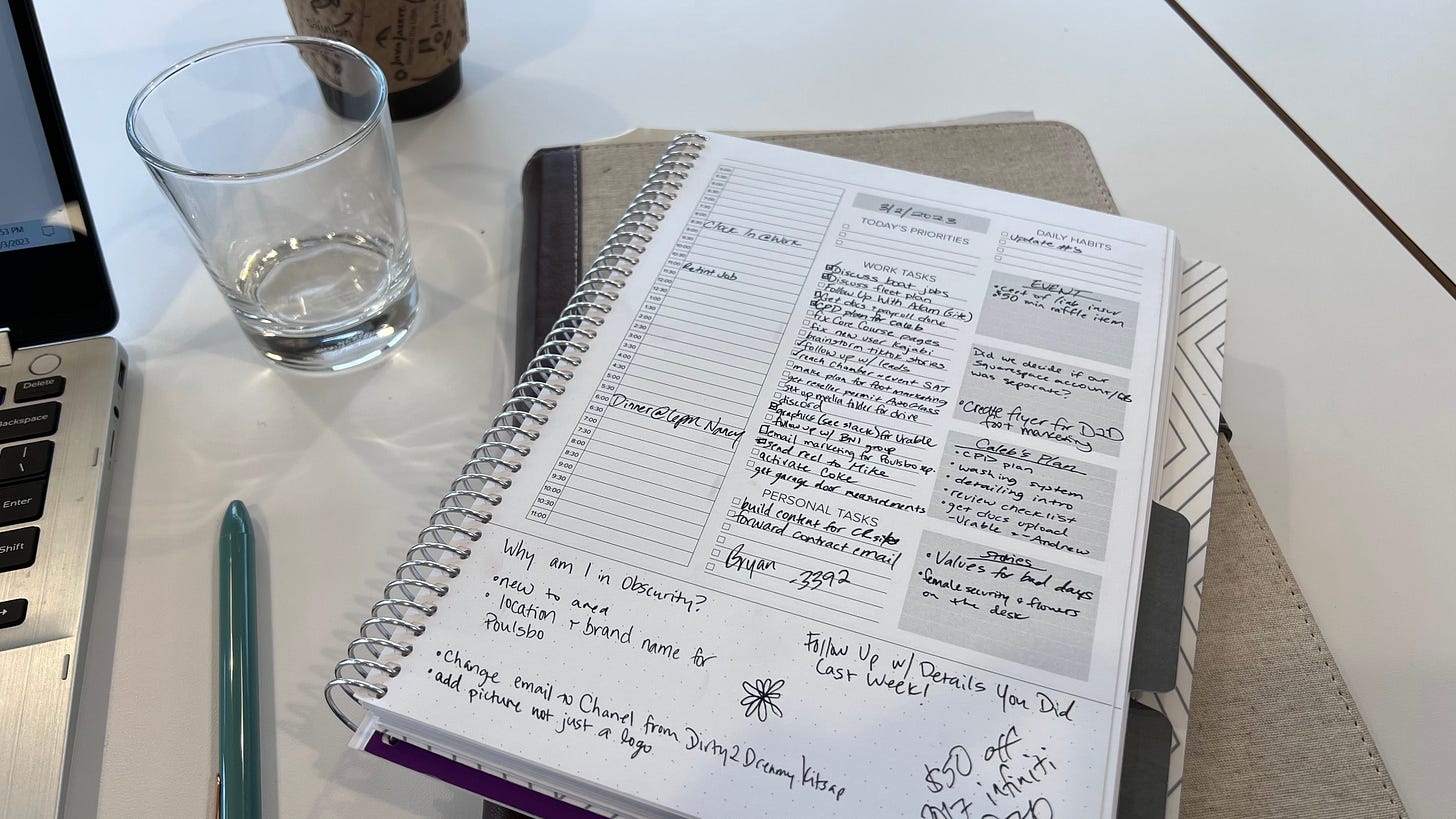 53 PM
/3/2023
Delete
Backspace
Enter
Shift
Java Jacket
6:30
7:00
8:00
8:30
9:00
Clock In @ Work
10:00
11:00
Retint Job
12:00
12:30
1:00
1:30
2:00
2:30
3:00
3:30
4:00
4:30
5:00
5:30
6:00
6:30
Dinner@6pm Nancy
7:00
7:30
8:00
8:30
9:00
9:30
10:00
10:30
11:00
3/2/2023
TODAY'S PRIORITIES
WORK TASKS
Discuss boat jobs
Discuss fleet plan
Follow Up With Adam (Gik)
get docs + payroll done
CPD plan for Caleb
fix Core Course pages
fix new user Kajabi
brainstorm tiktok stories
follow up w/ leads
reach chamber + event SAT
make plan for foot marketing
get reseller permit AutoGlass
set up media folder for drive
discord
graphics (see slack) for Urable
follow up w/ BNI group
email marketing for Poulsbo sp.
send reel to Mike
activate Coke
get garage door measurements
PERSONAL TASKS
build content for CR
forward contract email
Bryan
-3392
DAILY HABITS
Update #s
EVENT
• cost of liab insur
$50 min raffle item
Did we decide if our
Squarespace account/QB
was separate?
• Create flyer for D2D
foot marketing
Caleb's Plan
• CPD plan
• washing system
• detailing intro
• review checklist
• get docs upload
-Urable + -Andrew
Stories
• Values for bad days
• female security + flowers
on the desk
Why am I in Obscurity?
• new to area
• location + brand name for
Poulsbo
• Change email to Chanel from Dirty2Dreamy Kitsap
• add picture not just a logo
Follow Up w/ Details You Did
Last Week!
$50 off
2017 infiniti
D2D